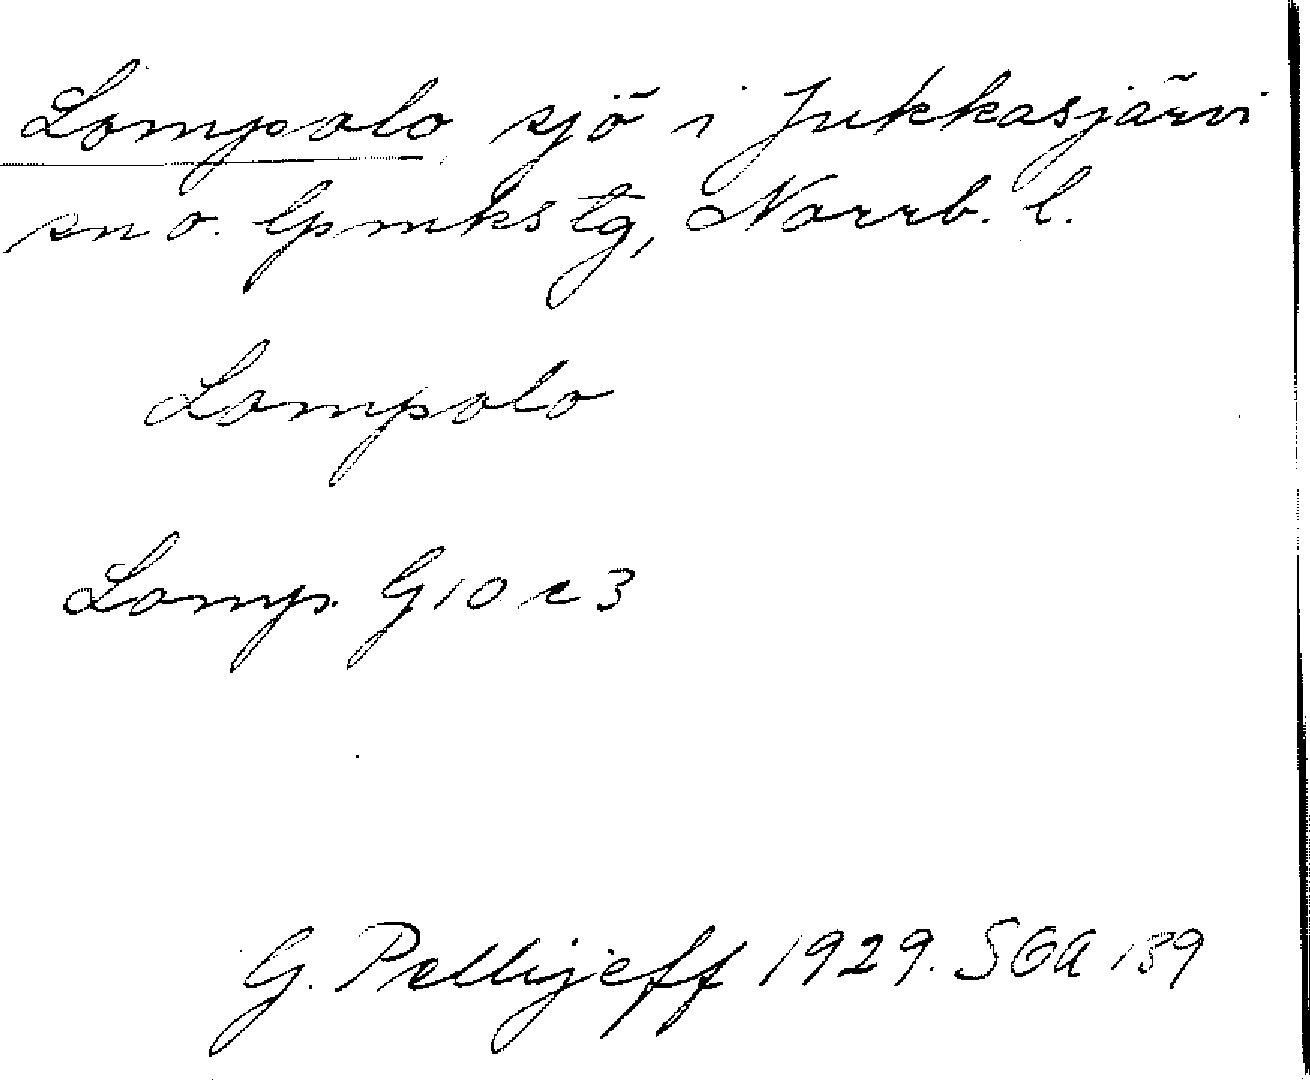 Lompolo sjö i Jukkasjärvi
sn o. lpmkstg, Norrb. l.
Lompolo
Lomp. G 10 c 3
G. Pellijeff 1929. SOA 189